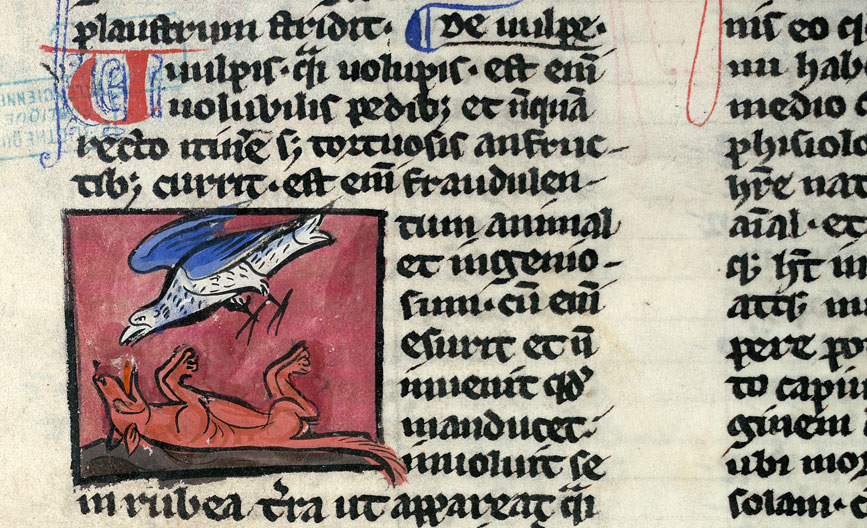 plaustrum stridit. De uulpe.
Uulpis. q̃i uolupis. est eni̅
uolubilis pedib; et n̅quā
recto itin̅e s; tortuosis anfruc-
tib; currit. est eni̅ fraudulen-
tum animal
et ingenio-
sum. cū eni̅
esurit et n̅
inuenit qd'
manducet.
inuoluit se
in rubea t̃ra ut appareat q̃i
nis eo
hab
medio
phisiolo
hr̅e nat
aīal. et
q; ht̅ in
pere po
to capiu
ginem
ubi mo
solam.